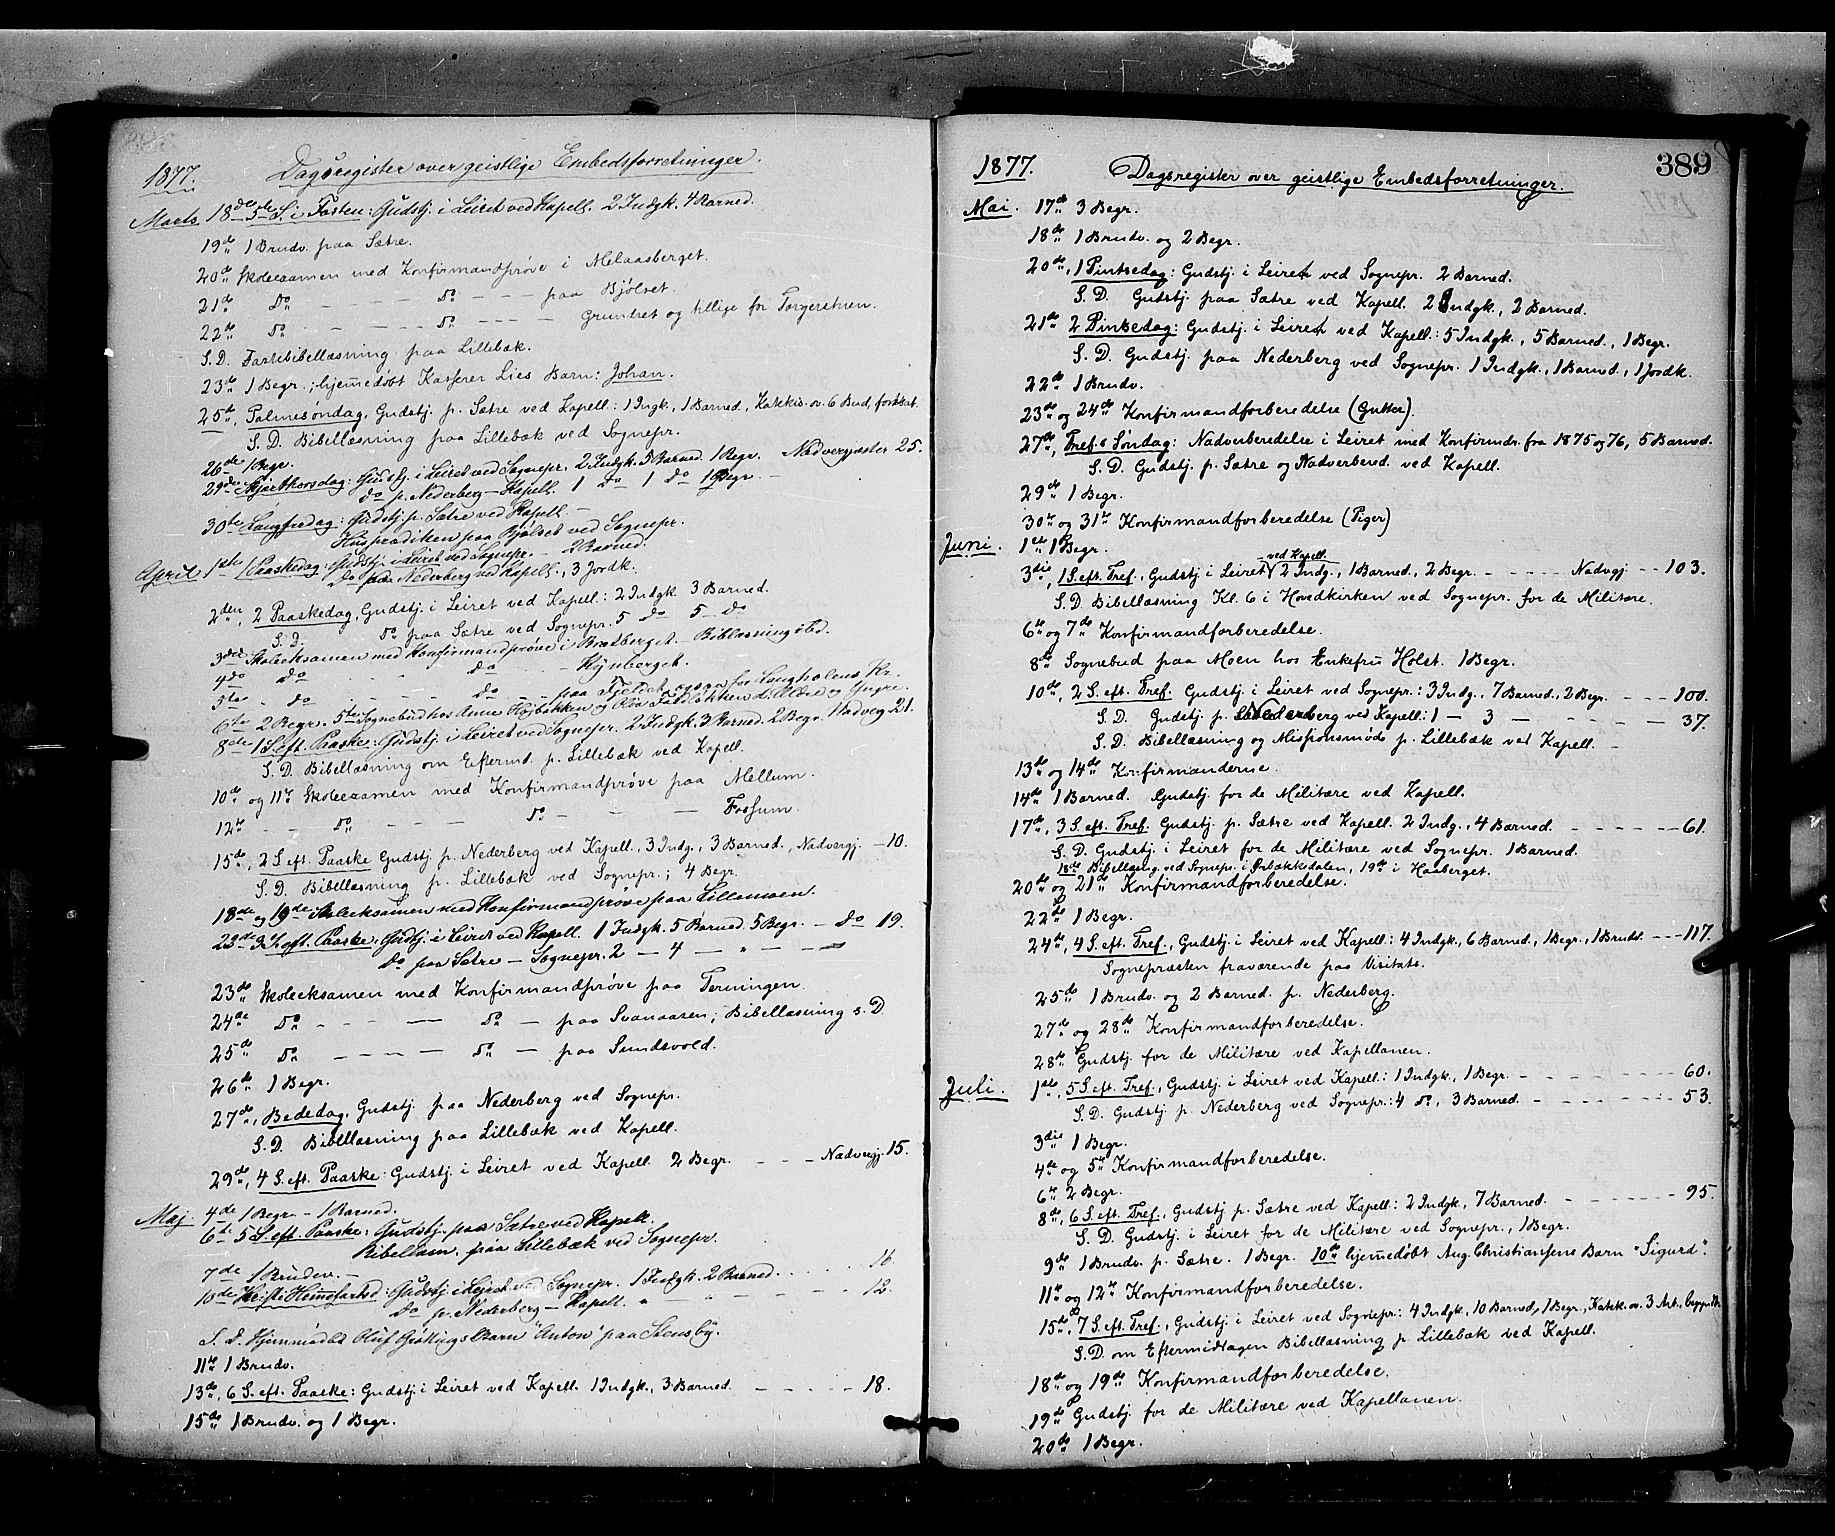 1877. Dagsregister over geistlige Embedsforretninger.
Marts 18de 5te S. i Fasten: Gudstj. i Leiret ved Kapell. 2 Indgk. 4 Barned.
19de 1 Brudv. paa Sætre.
20de Skoleexamen med Konfirmandprøve i Melaasberget.
21de Do - - - - Do - - - paa Bjølset.
22de Do - - - - Do - - - - Grundset og tillige for Torgerstuen.
S. D. Fastebibellæsning paa Lillebæk.
23de 1 Begr.; hjemmedøbt Kasserer Lies Barn: Johan.
25de, Palmesøndag, Gudstj. p. Sætre ved Kapell: 1 Ingk., 1 Barned., Katekis. ov. 6 Bud, fortsat.
S. D. Bibellæsning paa Lillebæk ved Sognepr.
26de 1 Begr.
29de Skjærthorsdag: Gudstj. i Leiret ved Sognepr. 2 Indgk. 5 Barned. 1 Begr. Nadvergjæster 25.
Do p. Nederberg - Kapell. 1 Do 1 Do 1 Begr. -
30te Langfredag: Gudstj. p. Sætre ved Kapell. -
Husprædiken paa Bjølset ved Sognepr.
April 1ste 1 Paaskedag: Gudstj. i Leiret ved Sognepr. - 2 Barned.
Do paa Nederberg ved Kapell., 3 Jordk.
2den, 2 Paaskedag, Gudstj. i Leiret ved Kapell: 2 Indgk. 3 Barned.
S. D. Do paa Sætre ved Sognepr. 5 Do 5 Do
3die Skoleeksamen med Konfirmandprøve i Bratberget. Biblæsning ibd.
4de Do - - - Do - Kynberget.
5te - Do - - - - Do - - paa Fjeldet, ogsaa for Langholens Kr.
6te 2 Begr. 5te Sognebud hos Anne Højbakken og Eva Faldløkken d. Ældre og Yngre.
8de 1 S. eft. Paaske: Gudstj. i Leiret ved Sognepr. 2 Indgk. 3 Barned. 2 Begr. Nadverg. 21.
S. D. Bibellæsning om Efterm. p. Lillebæk ved Kapell.
10de og 11te Skoleexamen med Konfirmandprøve paa Mellum.
12te - - Do - - - - Do - - - Fossum.
15de, 2 S. eft. Paaske Gudstj. p. Nederberg ved Kapell., 3 Indg., 3 Barned., Nadvergj. - 10.
S. D. Bibellæsning p. Lillebæk ved Sognepr.; 4 Begr.
18de og 19de Skoleeksamen med Konfirmandprøve paa Lillemoen.
22de 3 S. eft. Paaske: Gudstj. i Leiret ved Kapell. 1 Indgk. 5 Barned. 5 Begr. - Do 19.
Do paa Sætre - Sognepr. 2 - 4 - " - -
23de Skoleeksamen med Konfirmandprøve paa Terningen.
24de Do - - - - Do - paa Svanaasen; Bibellæsning s. D.
25de Do - - - - Do - paa Sundsvold.
26de 1 Begr.
27de, Bededag, Gudstj. paa Nederberg ved Sognepr.
S. D. Bibellæsning paa Lillebæk ved Kapell.
29de, 4 S. eft. Paaske: Gudstj. i Leiret ved Kapell. 2 Begr. - - - Nadvergj. 15.
Maj 4de 1 Begr. - 1 Barned.
6te 5 S. eft. Paaske: Gudstj. paa Sætre ved Kapell.
Bibellæsn. paa Lillebæk ved Sognepr.
7de 1 Brudev. -
10de Kristi Himmelfartsd.: Gudstj. i Lejret ved Sognepr. 1 Indgk. 2 Barned. . . . . 16
Do p. Nederberg - Kapell. " - - - - 12.
S. D. Hjemmedøbt Oluf Barn "Anton" paa Stensby.
11te 1 Brudv.
13de, 6 S. eft. Paaske: Gudstj. i Leiret ved Kapell. 1 Indgk., 3 Barned. - - - - 18.
15de 1 Brudv. og 1 Begr.
389
1877. Dagsregister over geistlige Embedsforretninger.
Mai. 17de 3 Begr.
18de 1 Brudv. og 2 Begr.
20de, 1 Pintsedag: Gudstj. i Leiret ved Sognepr. 2 Barned.
S. D. Gudstj. paa Sætre ved Kapell. 2 Indgk., 2 Barned.
21de 2 Pinsedag: Gudstj. i Leiret ved Kapell: 5 Indgk., 5 Barned., 1 Begr.
S. D. Gudstj. paa Nederberg ved Sognepr. 1 Indgk., 1 Barned., 1 Jordk.
22de 1 Brudv.
23de og 24de Konfirmandforberedelse (Gutter).
27de, Tref.s Søndag: Nadverberedelse i Leiret med Konfirmdr. fra 1875 og 76, 5 Barned.
S. D. Gudstj. p. Sætre og Nadverbered. ved Kapell.
29de 1 Begr.
30te og 31te Konfirmandforberedelse (Piger)
Juni. 1ste 1 Begr.
3die, 1 S. eft. Tref., Gudstj. i Leiret ved Kapell. 2 Indg., 1 Barned., 2 Begr. - - - - Nadvgj - - 103.
S. D. Bibellæsning Kl. 6 i Hovedkirken ved Sognepr. for de Militære.
6te og 7de Konfirmandforberedelse.
8de Sognebud paa Moen hos Enkefru Holst. 1 Begr.
10de, 2 S. eft. Tref. Gudstj. i Leiret ved Sognepr.: 3 Indg., 7 Barned., 2 Begr. - - - 100.
S. D. Gudstj. p. Nederberg ved Kapell: 1 - 3 - - - - - - 37.
S. D. Bibellæsning og Missionsmøde p. Lillebæk ved Kapell. -
13de og 14de Konfirmanderne.
14de 1 Barned. Gudstj. for de Militære ved Kapell.
17de, 3 S. eft. Tref. Gudstj. p. Sætre ved Kapell. 2 Indg., 4 Barned. - - - - - 61.
S. D. Gudstj. i Leiret for de Militære ved Sognepr. 1 Barned.
18de Bibellæsng. ved Sognepr. i Ørbækkedalen, 19de i Haaberget.
20de og 21de Konfirmandforberedelse.
22de 1 Begr.
24de, 4 S. eft. Tref., Gudstj. i Leiret ved Kapell: 4 Indgk., 6 Barned., 1 Begr., 1 Brudv. - - - 117.
Sognepræsten fraværende paa Visitats.
25de 1 Brudv. og 2 Barned. p. Nederberg.
27de og 28de Konfirmandforberedelse.
28de Gudstj. for de Militære ved Kapellanen.
Juli. 1ste, 5 S. eft. Tref., Gudstj. i Leiret ved Kapell.: 1 Indgk., 1 Begr. - - - - - 60.
S. D. Gudstj. p. Nederberg ved Sognepr.: 4 Do, 3 Barned. - - - - - 53.
3die 1 Begr.
4de og 5te Konfirmandforberedelse.
6te 2 Begr.
8de, 6 S. eft. Tref., Gudstj. p. Sætre ved Kapell: 2 Indgk., 7 Barned. - - - - - 95.
S. D. Gudstj. i Leiret for de Militære ved Sognepr., 1 Begr.
9de 1 Brudv. p. Sætre. 1 Begr. 10de hjemmedøbt Aug. Christiansens Barn "Sigurd".
11te og 12te Konfirmandforberedelse.
15de, 7 S. eft. Tref., Gudstj. i Leiret ved Sognepr: 4 Indgk., 10 Barned., 1 Begr., Katek. ov. 3 Art., begyndt.
S. D. om Eftermidtagen Bibellæsning p. Lillebæk ved Kapell.
18de og 19de Konfirmandforberedelse.
19de Gudstj. for de Militære ved Kapellanen.
20de 1 Begr.